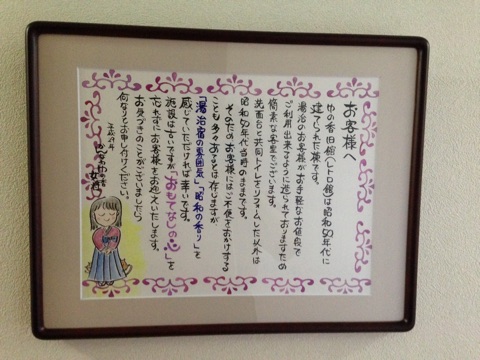 お客様へ
ゆの香旧館(レトロ館)は昭和50年代に
建てられた棟です。
湯治のお客様がお手軽なお値段で
ご利用出来るように造られておりますため
簡素な客室でございます。
洗面台と共同トイレをリフォームした以外は
昭和50年代当時のままです。
そのためお客様にはご不便をおかけする
ことも多々あるとは存じますが
「湯治宿の雰囲気」「昭和の香り」を
感じていただければ幸いです。
施設は古いですが「おもてなしの心」を
忘れずにお客様をお迎えいたします。
お気づきのことがございましたら
何なりとお申し付けください。
女将